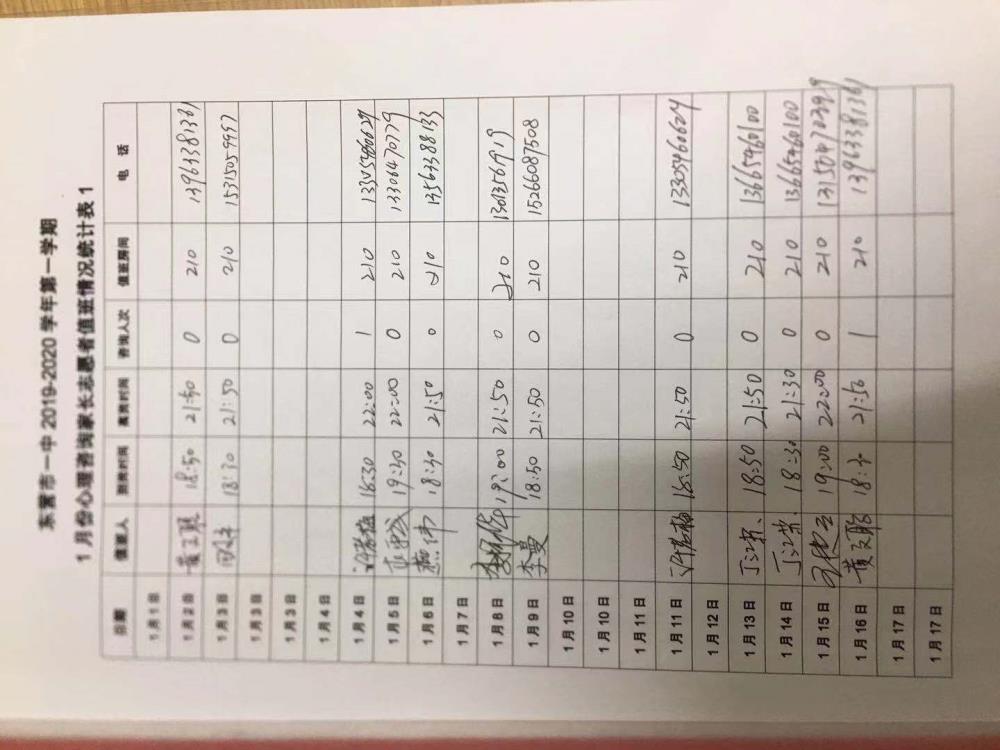 东营市一中2019-2020学年第一学期
1月份心理咨询家长志愿者值班情况统计表1
日期 值班人 到岗时间 离岗时间 咨询人次 值班房间 电话
1月1日
1月2日 18:50 21:50 0 210 13963381361
1月3日 18:30 21:50 0 210 15315059957
1月3日
1月3日
1月4日
1月4日 22:00 1 210
1月5日 19:30 22:00 0 210 13306470779
1月6日 燕伟 18:30 21:50 0 210 13563388133
1月7日
1月8日 19:00 21:50 0 210
1月9日 李曼 18:50 21:50 0 210 15266087508
1月10日
1月10日
1月11日
1月11日 18:50 21:50 0 210 13305466604
1月12日
1月13日 18:50 21:50 0 210 13665460100
1月14日 18:30 21:30 0 210 13665460100
1月15日 19:00 22:00 0 210
1月16日 21:50 1 210 13963381361
1月17日
1月17日